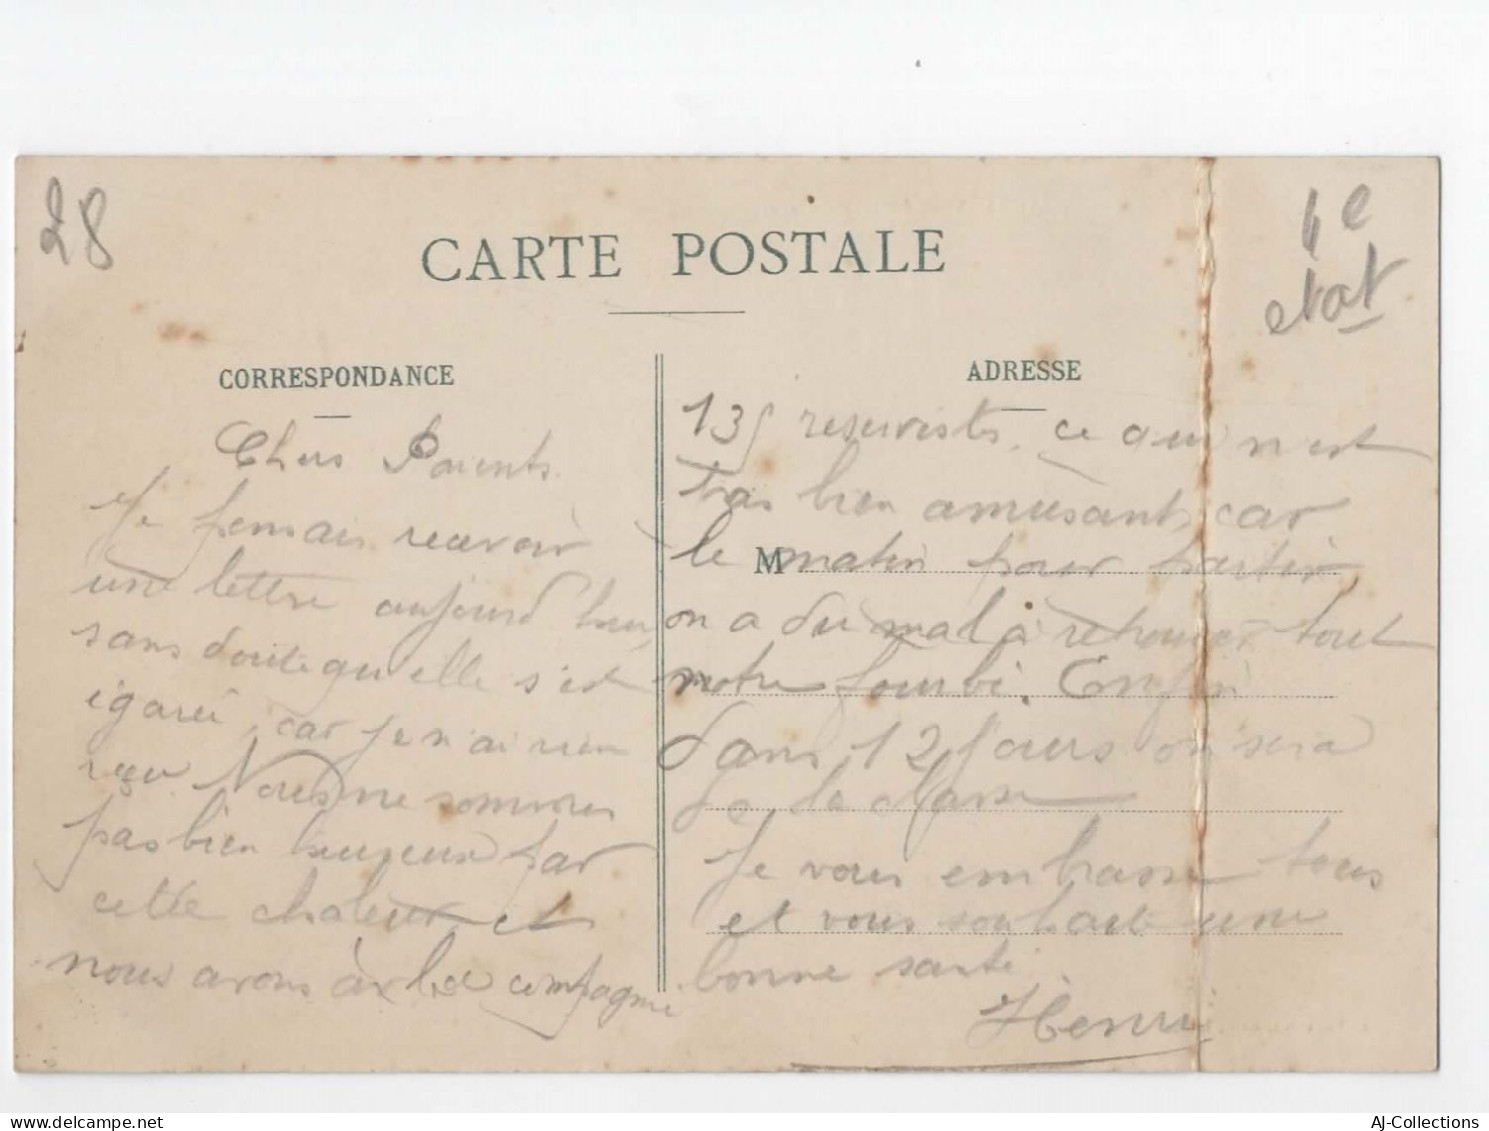 28
1e
etat
CARTE POSTALE
CORRESPONDANCE
ADRESSE
Chers Parents
Je pensais recevoir
une lettre aujourd'hui,
sans doute qu'elle s'est
égarée, car je n'ai rien
reçu. Nous ne sommes
pas bien heureux par
cette chaleur et
nous avons à la compagnie
135 reservistes, ce qui n'est
tras bien amusant, car
le matin pour partir
M
on a du mal a retrouver tout
notre fourbi. Enfin
dans 12 jours on sera
de la classe
Je vous embrasse tous
et vous souhaite une
bonne santé.
Henri
AJ-Collections